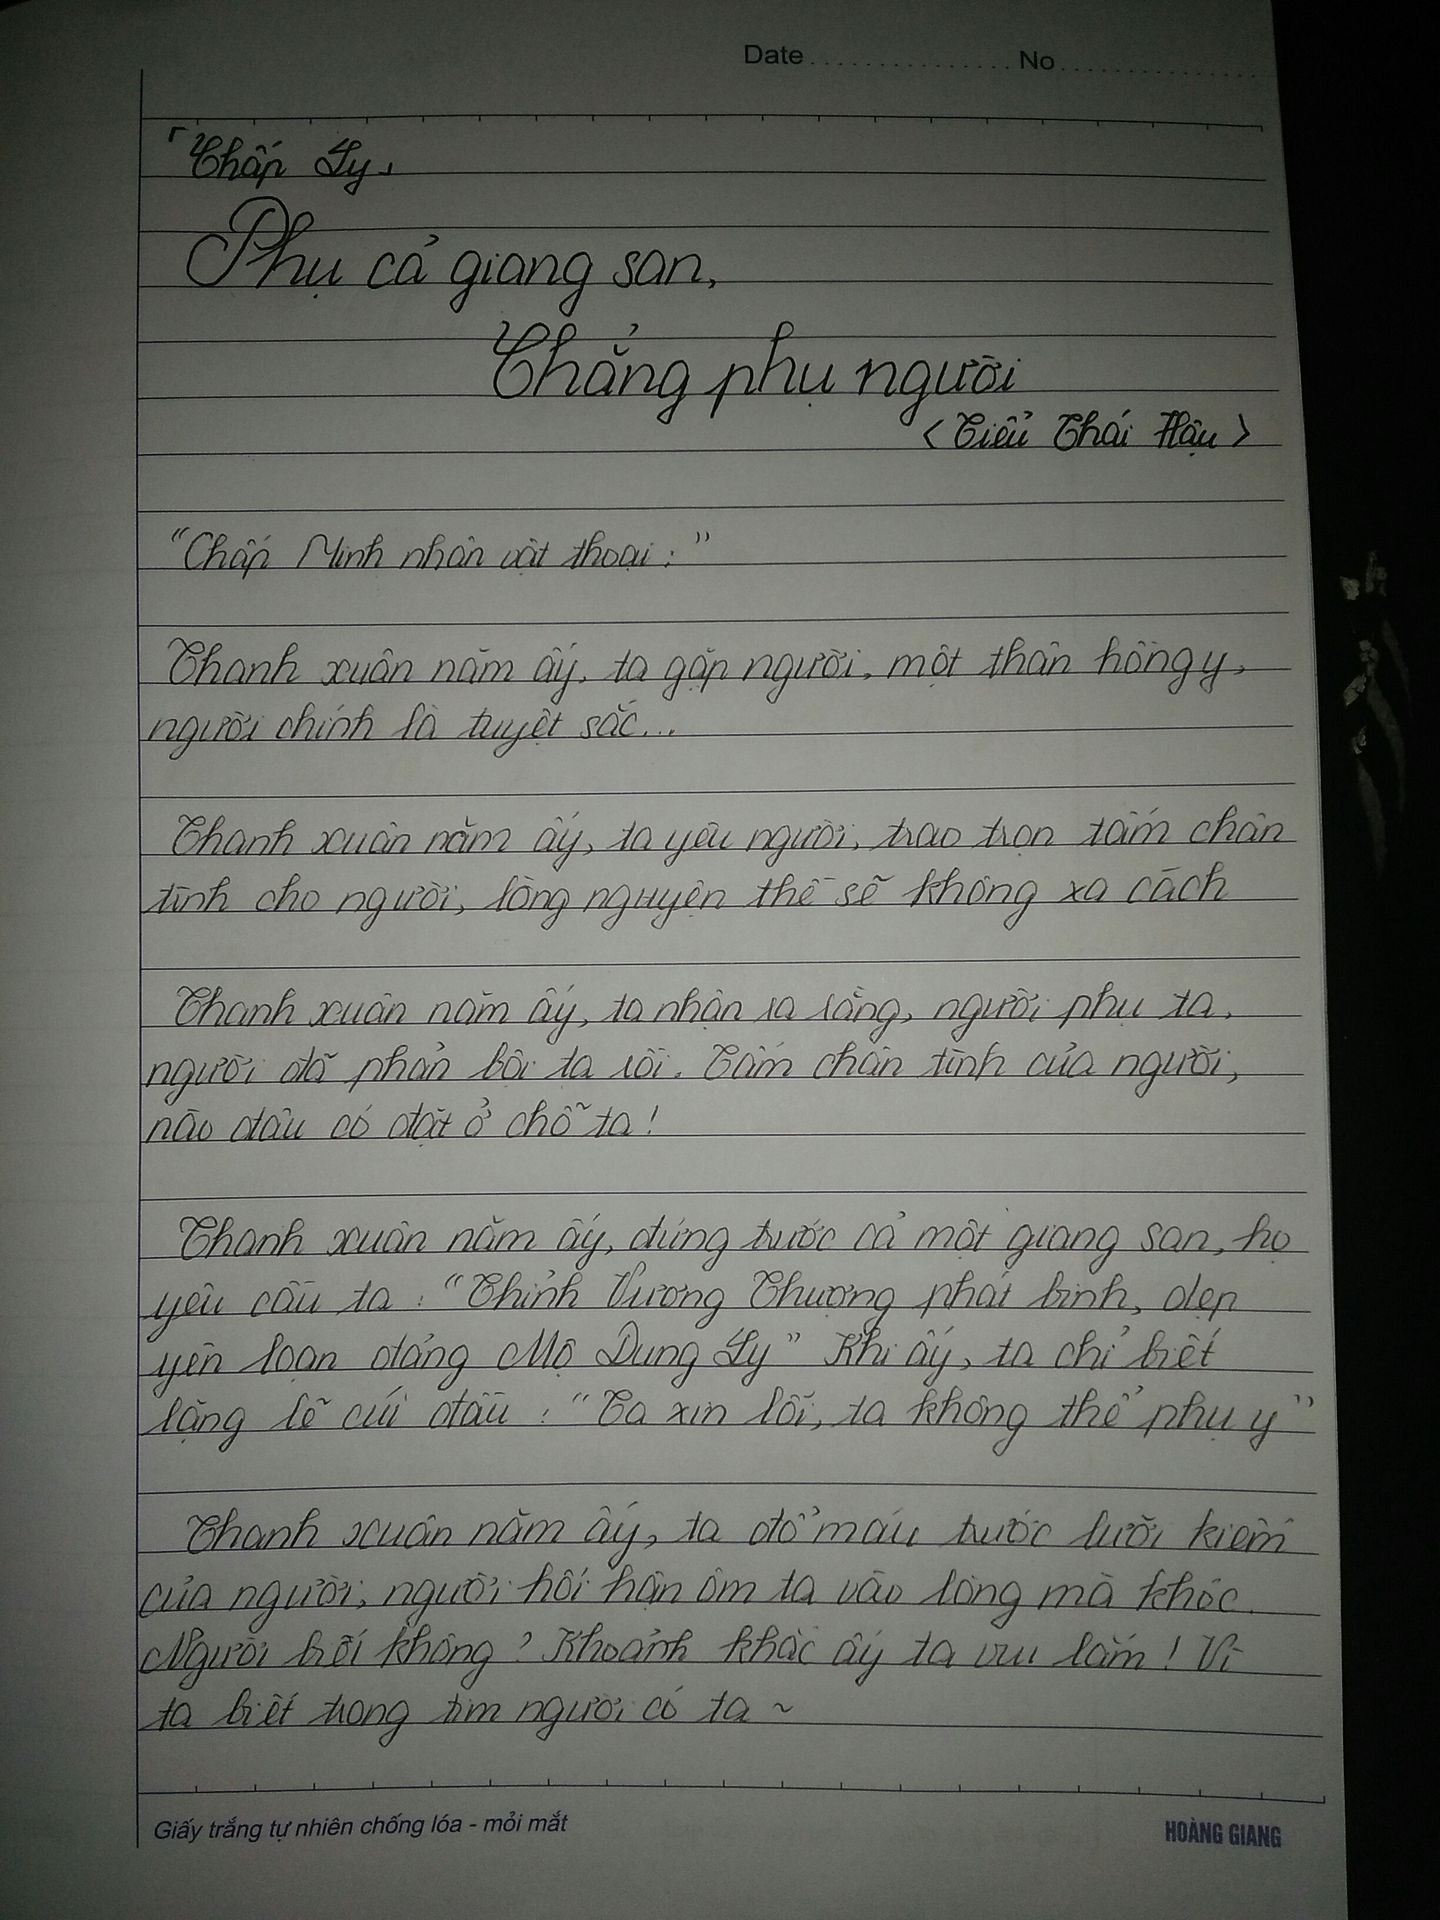 Date .................... No ....................
「Chấp Ly」
Phụ cả giang san,
Chẳng phụ người
< Tiểu Thái Hậu >
"Chấp Minh nhân vật thoại : "
Thanh xuân năm ấy, ta gặp người, một thân hồng y,
người chính là tuyệt sắc...
Thanh xuân năm ấy, ta yêu người, trao trọn tấm chân
tình cho người, lòng nguyện thề sẽ không xa cách
Thanh xuân năm ấy, ta nhận ra rằng, người phụ ta,
người đã phản bội ta rồi. Tấm chân tình của người,
nào đâu có đặt ở chỗ ta !
Thanh xuân năm ấy, đứng trước cả một giang san, họ
yêu cầu ta : "Thỉnh Vương Thượng phát binh, dẹp
yên loạn đảng Mộ Dung Ly" Khi ấy, ta chỉ biết
lặng lẽ cúi đầu : "Ta xin lỗi, ta không thể phụ y"
Thanh xuân năm ấy, ta đổ máu trước lưỡi kiếm
của người, người hối hận ôm ta vào lòng mà khóc.
Người biết không ? Khoảnh khắc ấy ta vui lắm ! Vì
ta biết trong tim người có ta ~
Giấy trắng tự nhiên chống lóa - mỏi mắt
HOÀNG GIANG